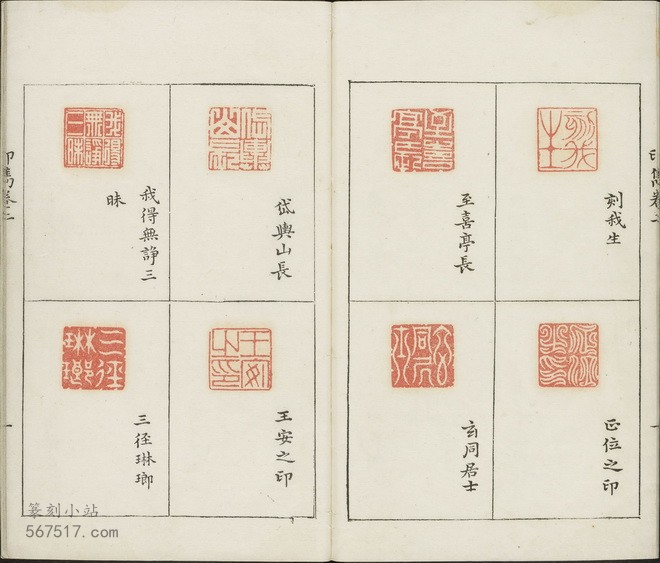 印雋卷二
刻我生
至喜亭長
正位之印
玄同居士
岱輿山長
我得無諍三
昧
王安之印
三徑琳瑯
印雋卷二
篆刻小站
567517.com